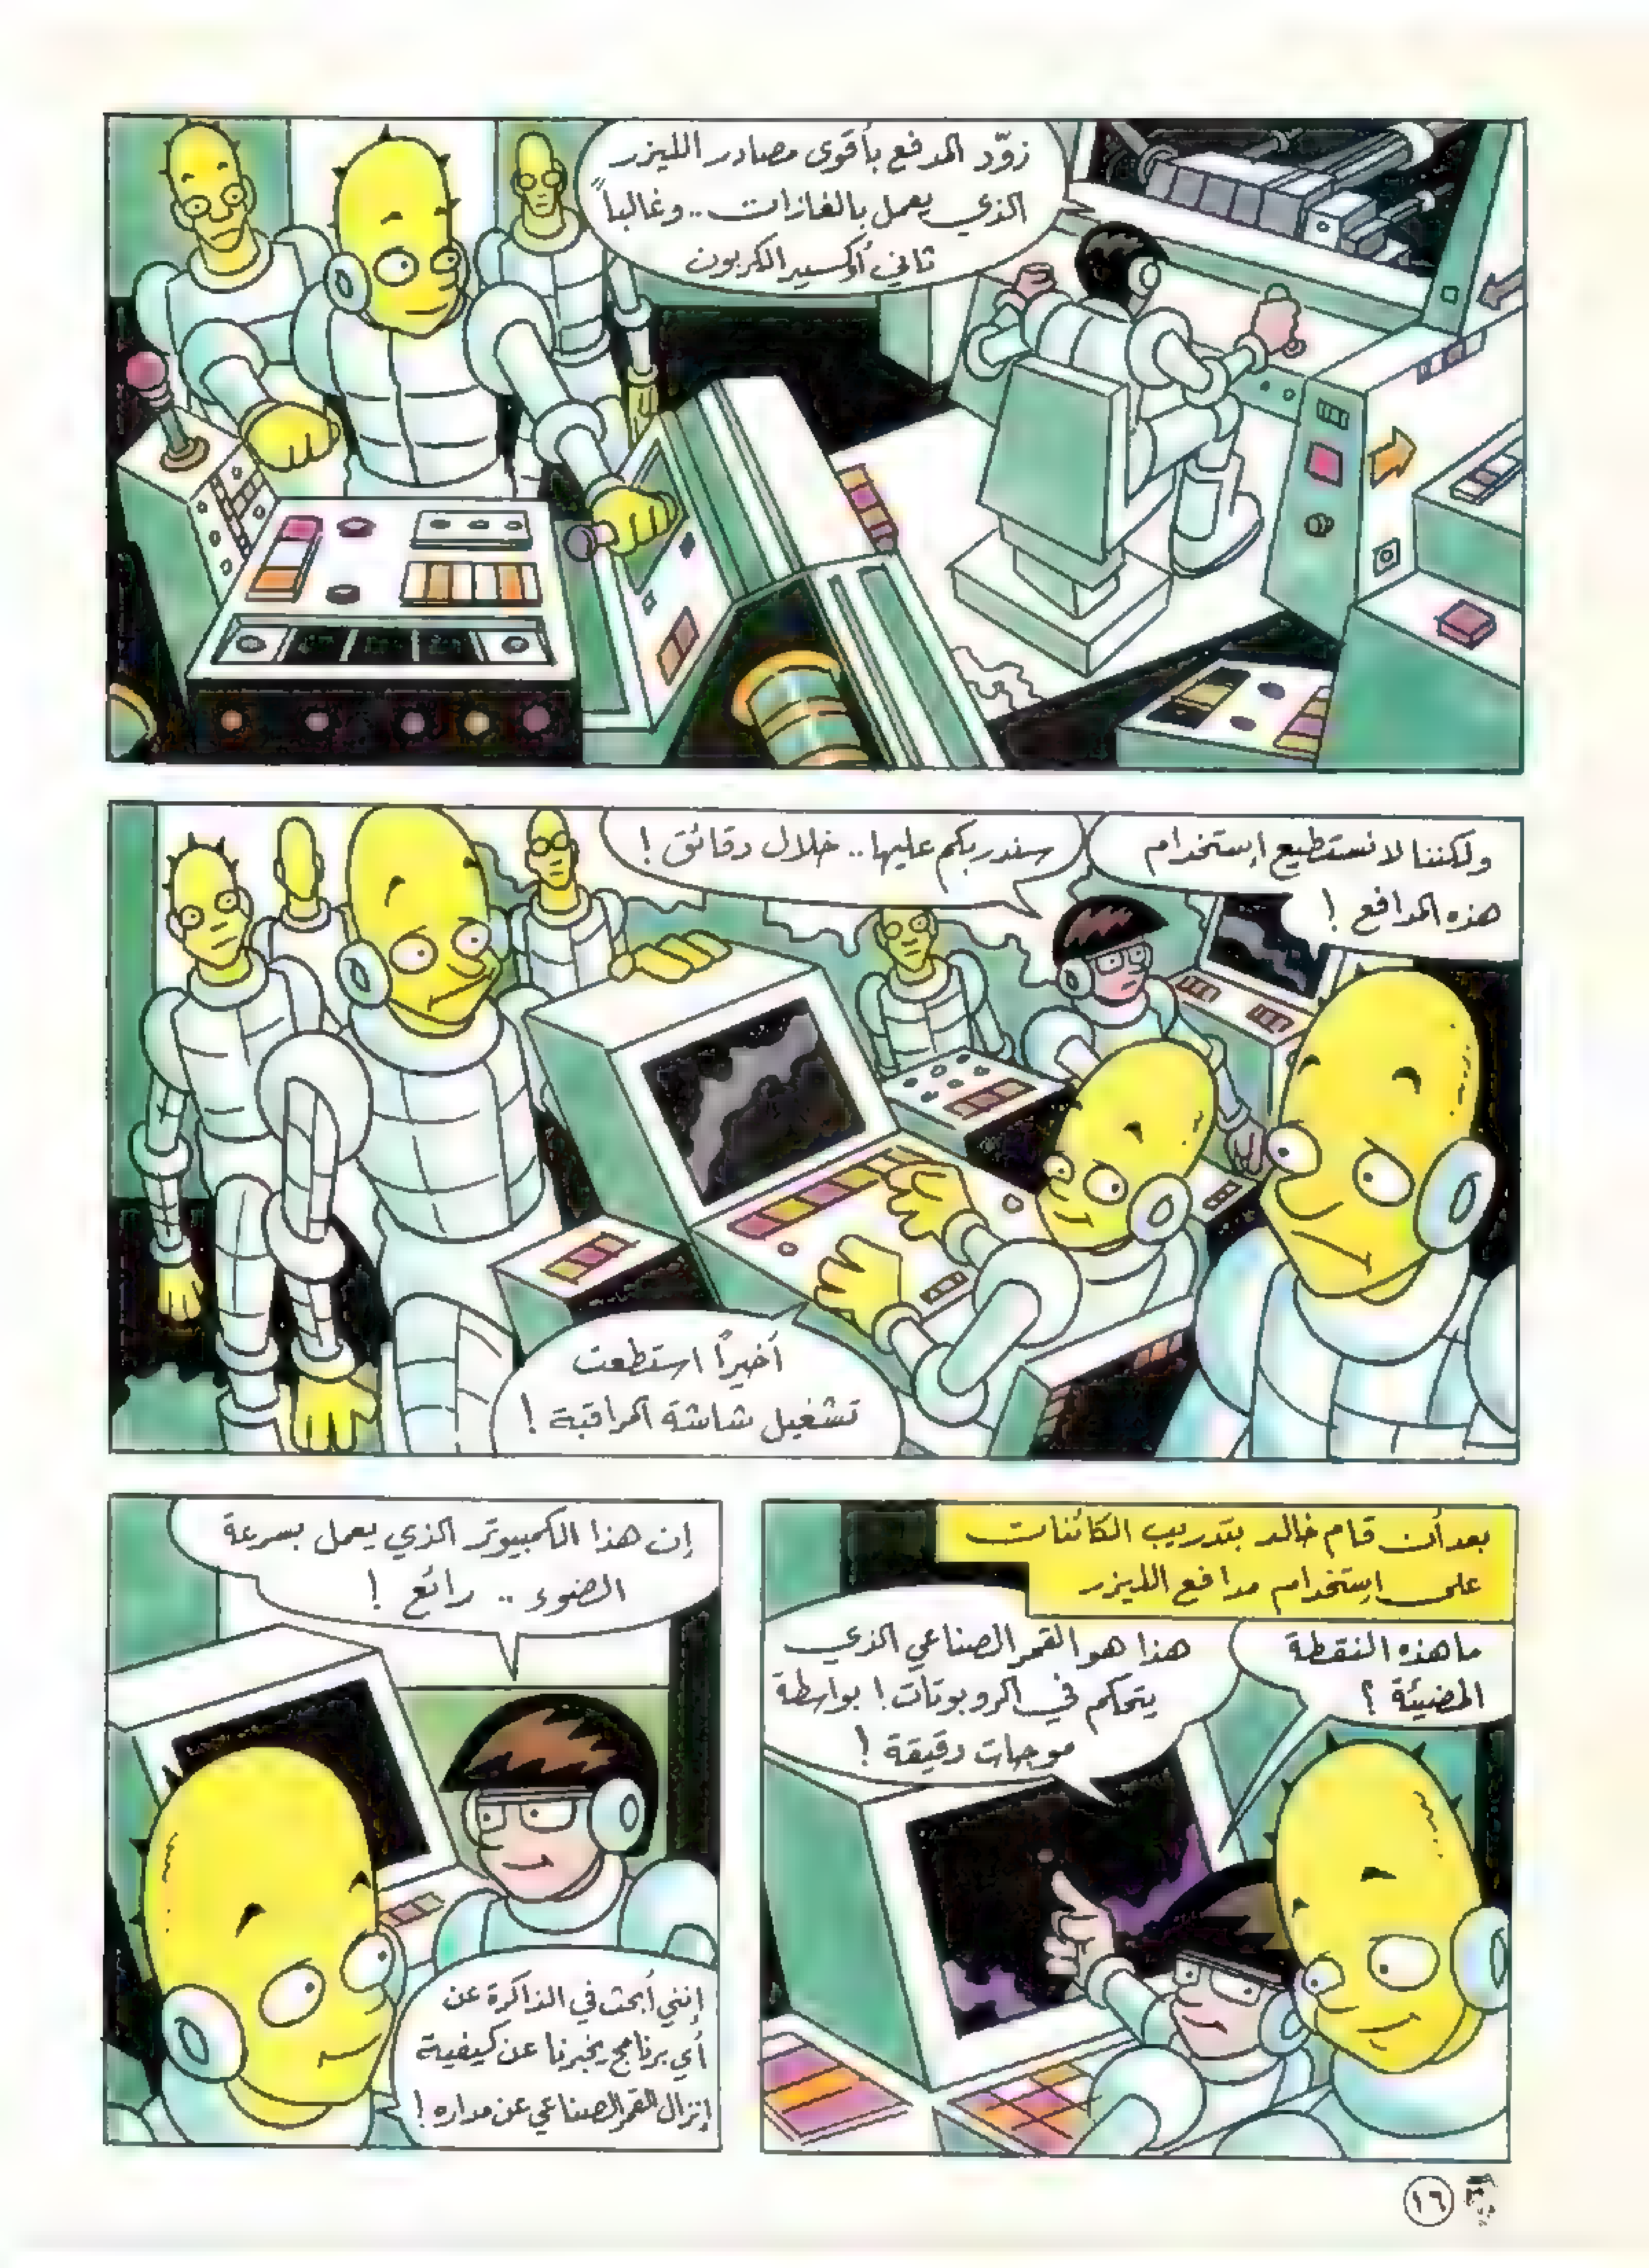 زوّد المدفع بأقوى مصادر الليزر
الذي يعمل بالغازات .. وغالباً
ثاني أوكسيد الكربون
ولكننا لا نستطيع إستخدام
هذه المدافع !
سندربكم عليها .. خلال دقائق !
أخيراً استطعت
تشغيل شاشة المراقبة !
بعد أن قام خالد بتدريب الكائنات
على إستخدام مدافع الليزر
ما هذه النقطة
المضيئة ؟
هذا هو القمر الصناعي الذي
يتحكم في الروبوتات ! بواسطة
موجات دقيقة !
إن هذا الكمبيوتر الذي يعمل بسرعة
الضوء .. رائع !
إنني أبحث في الذاكرة عن
أي برنامج يخبرنا عن كيفية
إنزال القمر الصناعي عن مداره !
١٦